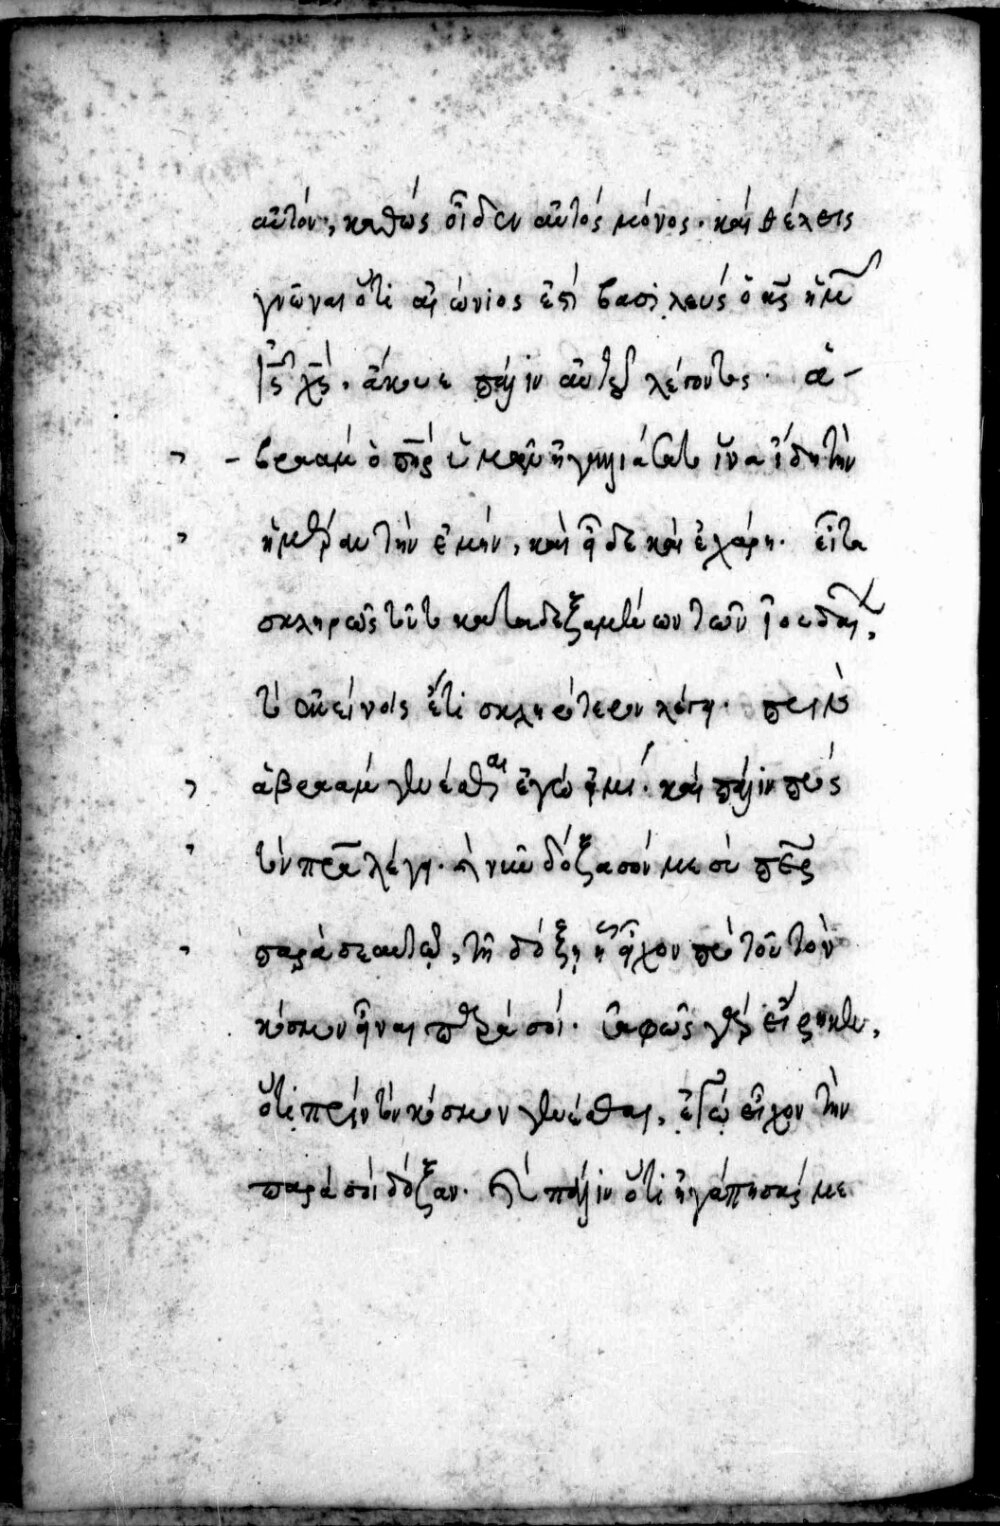 αὐτόν, καθὼς οἶδεν αὐτὸς μόνος. καὶ θέλεις
γνῶναι ὅτι αἰώνιος ἐστὶ βασιλεὺς ὁ κ̅ς ἡμῶν
ι̅ς χ̅ς. ἄκουε πάλιν αὐτοῦ λέγοντος. ἀ-
-βραὰμ ὁ π̅ηρ ὑμῶν ἠγαλλιάσατο ἵνα ἴδη τὴν
ἡμέραν τὴν ἐμήν, καὶ εἶδε καὶ ἐχάρη. εἶτα
σκληρῶς τοῦτο καταδεξαμένων τῶν ἰουδαίων,
τὸ ἐκείνοις ἔτι σκληρότερον λέγει. πρὶν
ἀβραὰμ γενέσθαι ἐγώ εἰμι. καὶ πάλιν πρὸς
τὸν π̅ρα λέγει. καὶ νῦν δόξασόν με σὺ π̅ερ
παρὰ σεαυτῷ, τῇ δόξῃ ᾗ εἶχον πρὸ τοῦ τὸν
κόσμον εἶναι παρὰ σοί. σαφῶς γὰρ εἴρηκεν,
ὅτι πρὶν τὸν κόσμον γενέσθαι, ἐγὼ εἶχον τὴν
παρὰ σοὶ δόξαν. καὶ πάλιν ὅτι ἠγάπησάς με